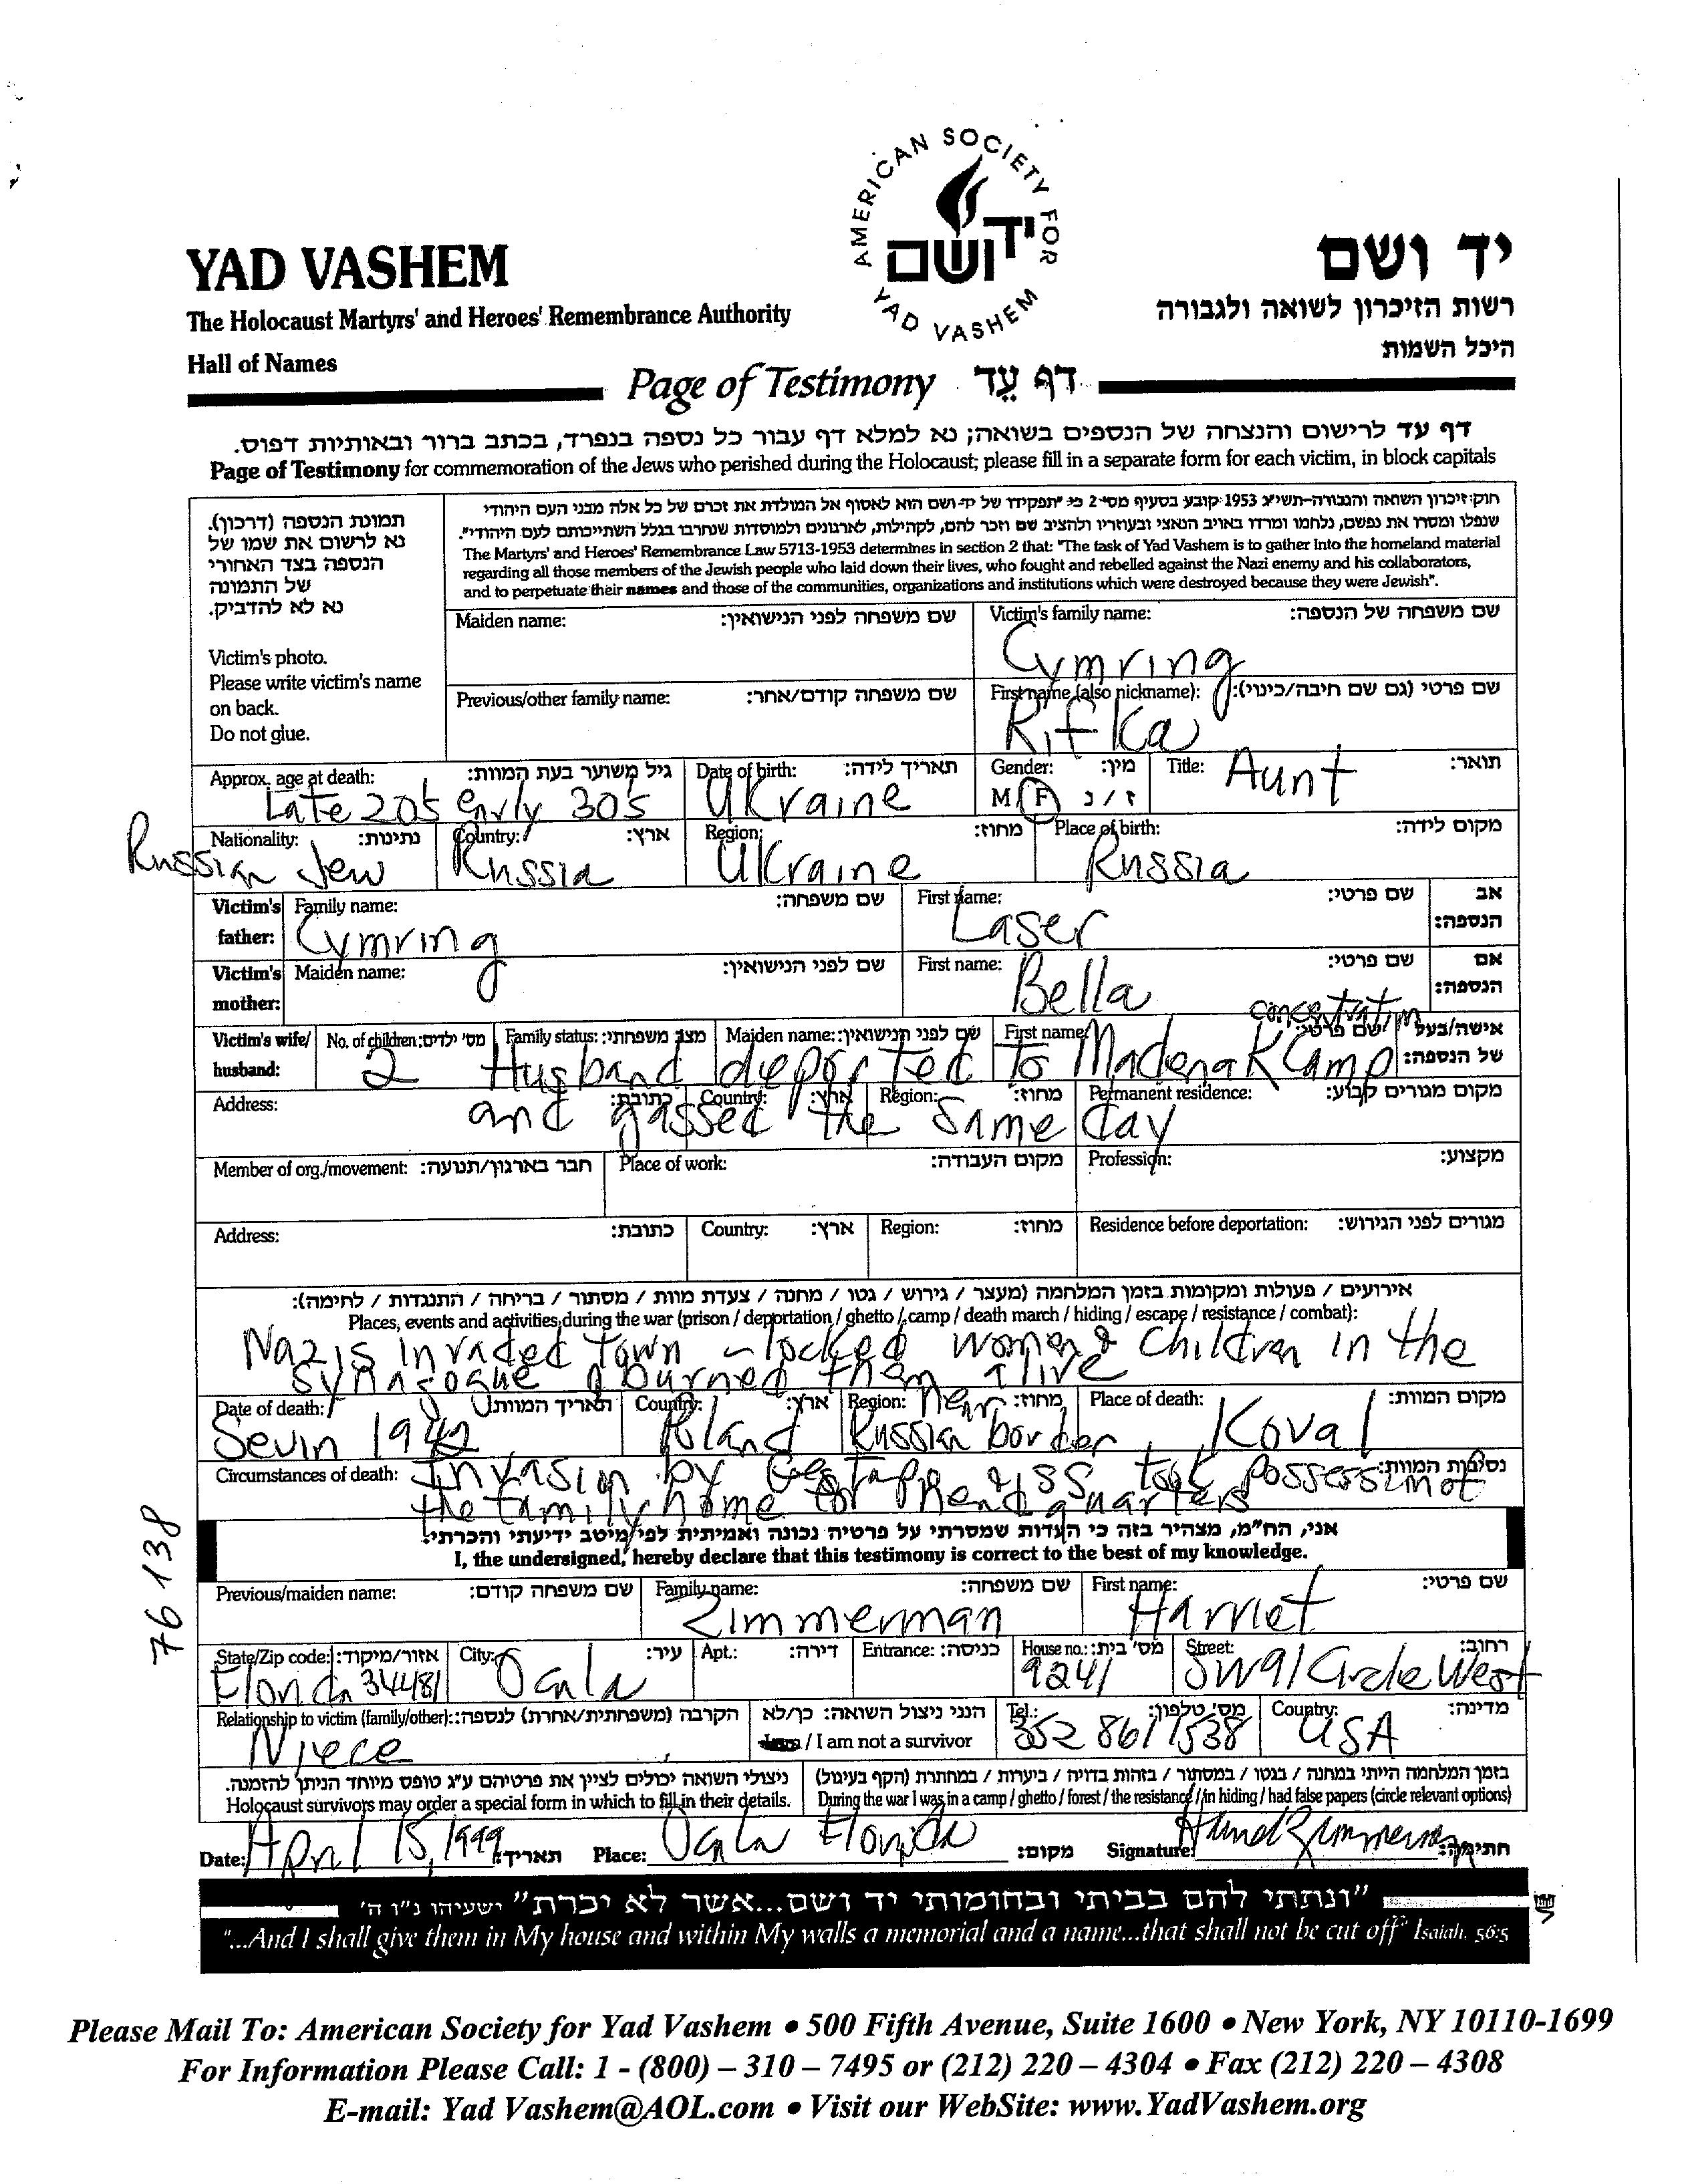 AMERICAN SOCIETY FOR
יד ושם
YAD VASHEM
YAD VASHEM
יד ושם
The Holocaust Martyrs' and Heroes' Remembrance Authority
רשות הזיכרון לשואה ולגבורה
Hall of Names
היכל השמות
Page of Testimony דף עֵד
דף עד לרישום והנצחה של הנספים בשואה; נא למלא דף עבור כל נספה בנפרד, בכתב ברור ובאותיות דפוס.
Page of Testimony for commemoration of the Jews who perished during the Holocaust; please fill in a separate form for each victim, in block capitals
תמונת הנספה (דרכון).
נא לרשום את שמו של
הנספה בצד האחורי
של התמונה
נא לא להדביק.
Victim's photo.
Please write victim's name
on back.
Do not glue.
חוק זיכרון השואה והגבורה-תשי"ג 1953 קובע בסעיף מס' 2 כי "תפקידו של יד-ושם הוא לאסוף אל המולדת את זכרם של כל אלה מבני העם היהודי
שנפלו ומסרו את נפשם, נלחמו ומרדו באויב הנאצי ובעוזריו ולהציב שם וזכר להם, לקהילות, לארגונים ולמוסדות שנחרבו בגלל השתייכותם לעם היהודי".
The Martyrs' and Heroes' Remembrance Law 5713-1953 determines in section 2 that: "The task of Yad Vashem is to gather into the homeland material
regarding all those members of the Jewish people who laid down their lives, who fought and rebelled against the Nazi enemy and his collaborators,
and to perpetuate their names and those of the communities, organizations and institutions which were destroyed because they were Jewish".
Maiden name: שם משפחה לפני הנישואין:
Victim's family name: שם משפחה של הנספה:
Cymring
Previous/other family name: שם משפחה קודם/אחר:
First name (also nickname): שם פרטי (גם שם חיבה/כינוי):
Rifka
Approx. age at death: גיל משוער בעת המוות: Date of birth: תאריך לידה: Gender: מין: Title: תואר:
Late 20s early 30s Ukraine M F ז / נ Aunt
Nationality: נתינות: Country: ארץ: Region: מחוז: Place of birth: מקום לידה:
Russian Jew Russia Ukraine Russia
Victim's father: Family name: שם משפחה: First name: שם פרטי: אב הנספה:
Cymring Laser
Victim's mother: Maiden name: שם לפני הנישואין: First name: שם פרטי: אם הנספה:
Bella
concentration
Victim's wife/husband: No. of children: מס' ילדים: Family status: מצב משפחתי: Maiden name: שם לפני הנישואין: First name: שם פרטי: אישה/בעל של הנספה:
2 Husband deported to Madenak Camp
Address: כתובת: Country: ארץ: Region: מחוז: Permanent residence: מקום מגורים קבוע:
and gassed the same day
Member of org./movement: חבר בארגון/תנועה: Place of work: מקום העבודה: Profession: מקצוע:
Address: כתובת: Country: ארץ: Region: מחוז: Residence before deportation: מגורים לפני הגירוש:
אירועים / פעולות ומקומות בזמן המלחמה (מעצר / גירוש / גטו / מחנה / צעדת מוות / מסתור / בריחה / התנגדות / לחימה):
Places, events and activities during the war (prison / deportation / ghetto / camp / death march / hiding / escape / resistance / combat):
Nazis invaded town - locked women & children in the
synagogue & burned them alive
Date of death: תאריך המוות: Country: ארץ: Region: מחוז: Place of death: מקום המוות:
1942 Poland near Russian border Koval
Circumstances of death: נסיבות המוות:
Invasion by Gestapo & SS took possession of
the family home for Headquarters
אני, הח"מ, מצהיר בזה כי העדות שמסרתי על פרטיה נכונה ואמיתית לפי מיטב ידיעתי והכרתי.
I, the undersigned, hereby declare that this testimony is correct to the best of my knowledge.
Previous/maiden name: שם משפחה קודם: Family name: שם משפחה: First name: שם פרטי:
Zimmerman Harriet
State/Zip code: אזור/מיקוד: City: עיר: Apt.: דירה: Entrance: כניסה: House no.: מס' בית: Street: רחוב:
Florida 34481 Ocala 9241 SW 91 Circle West
Relationship to victim (family/other): הקרבה (משפחתית/אחרת) לנספה: הנני ניצול השואה: כן/לא Tel.: מס' טלפון: Country: מדינה:
Niece / I am not a survivor 352 861 1538 USA
ניצולי השואה יכולים לציין את פרטיהם ע"ג טופס מיוחד הניתן להזמנה.
Holocaust survivors may order a special form in which to fill in their details.
בזמן המלחמה הייתי במחנה / בגטו / במסתור / בזהות בדויה / ביערות / במחתרת (הקף בעיגול)
During the war I was in a camp / ghetto / forest / the resistance / in hiding / had false papers (circle relevant options)
Date: April 15, 1999 תאריך: Place: Ocala Florida מקום: Signature: Harriet Zimmerman חתימה:
"ונתתי להם בביתי ובחומותי יד ושם...אשר לא יכרת" ישעיהו נ"ו ה'
"...And I shall give them in My house and within My walls a memorial and a name...that shall not be cut off" Isaiah, 56:5
76138
Please Mail To: American Society for Yad Vashem • 500 Fifth Avenue, Suite 1600 • New York, NY 10110-1699
For Information Please Call: 1 - (800) – 310 – 7495 or (212) 220 – 4304 • Fax (212) 220 – 4308
E-mail: Yad Vashem@AOL.com • Visit our WebSite: www.YadVashem.org